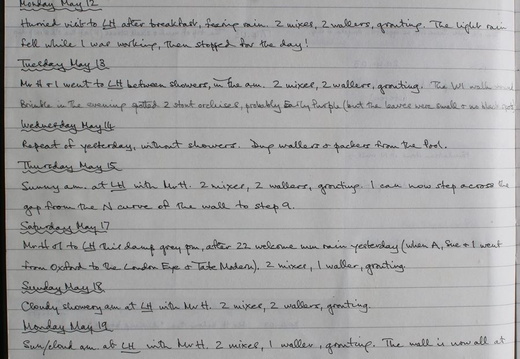 Monday May 12
Hurried visit to LH after breakfast, fearing rain. 2 mixes, 2 wallers, grouting. The light rain
fell while I was working, then stopped for the day!
Tuesday May 13
Mr H & I went to LH between showers, in the am. 2 mixes, 2 wallers, grouting. The WI walk round
Brinkle in the evening spotted 2 stout orchises, probably Early Purple (but the leaves were small & no
Wednesday May 14
Repeat of yesterday, without showers. Dug wallers & packers from the Pool.
Thursday May 15
Sunny am. at LH with Mr H. 2 mixes, 2 wallers, grouting. I can now step across the
gap from the N curve of the wall to step 9.
Saturday May 17
Mr H & I to LH this damp grey pm, after 22 welcome mm rain yesterday (when A, Sue & I went
from Oxford to the London Eye & Tate Modern). 2 mixes, 1 waller, grouting.
Sunday May 18
Cloudy showery am at LH with Mr H. 2 mixes, 2 wallers, grouting.
Monday May 19
Sun/cloud am at LH with Mr H. 2 mixes, 1 waller, grouting. The wall is now all at